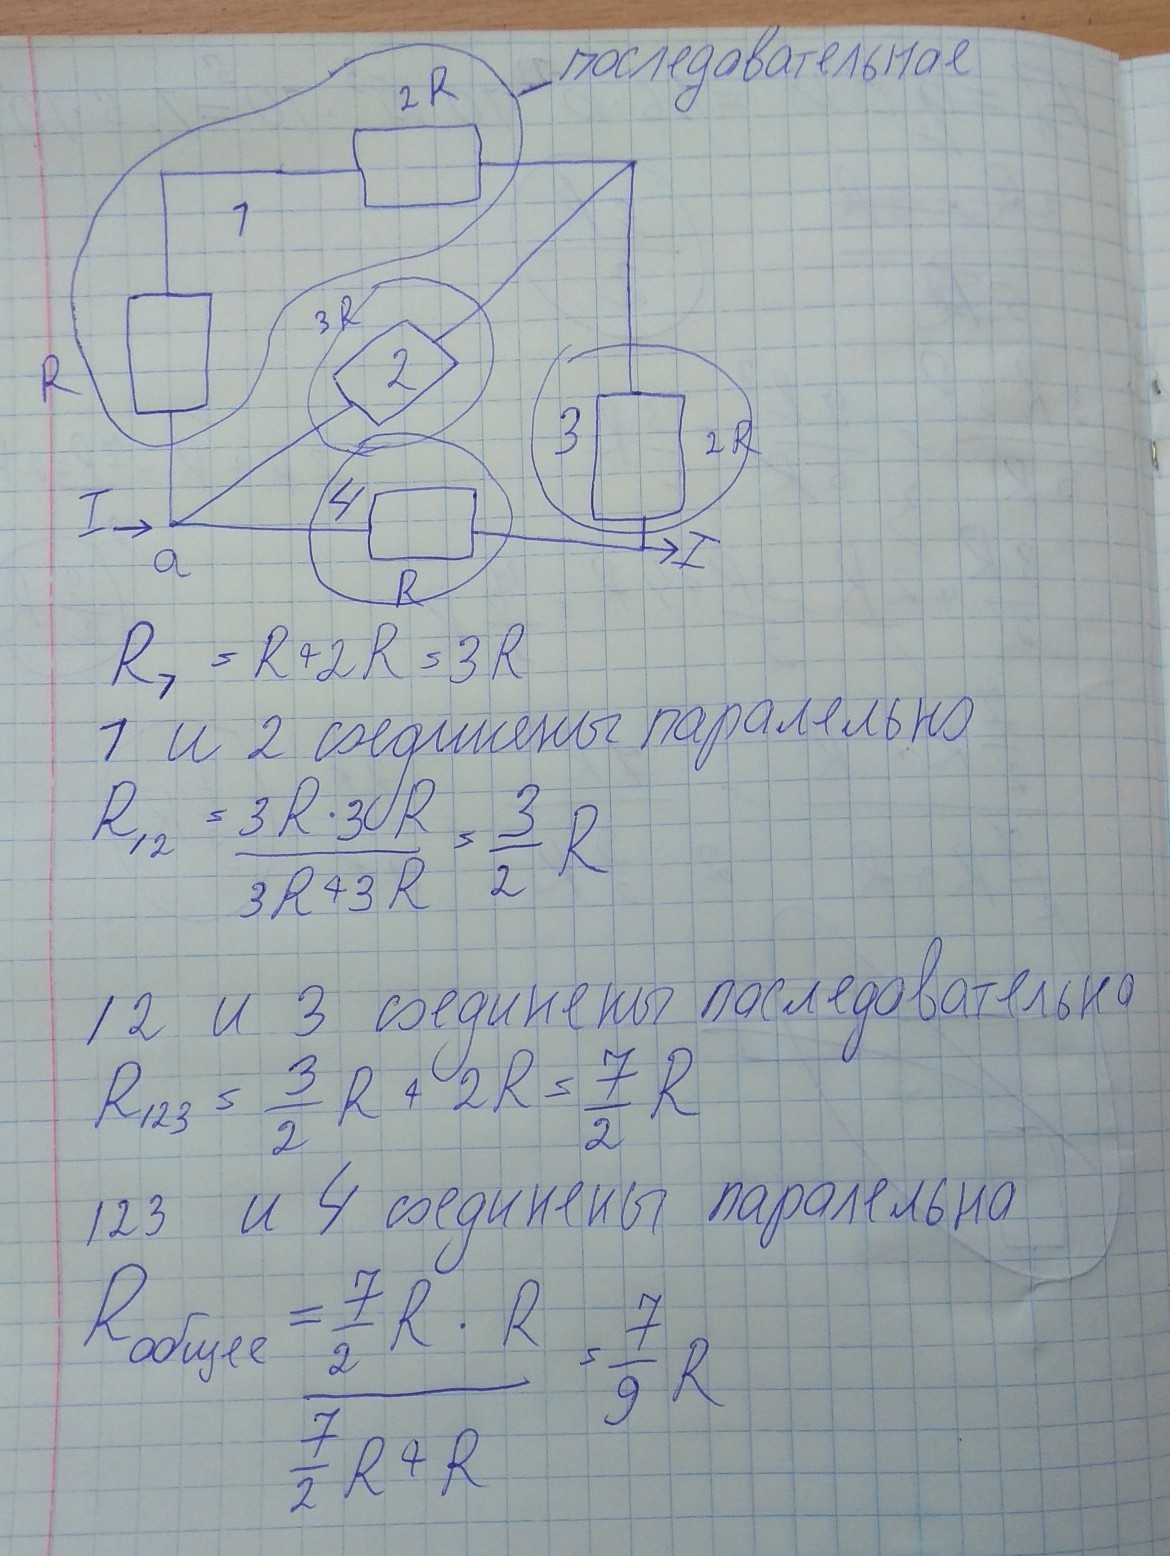 последавательная
2R
1
3R
2
R
3
2R
4
I
I
a
R
R₁ = R+2R=3R
1 и 2 соединены паралельно
R₁₂ = 3R·3R / 3R+3R = 3/2 R
12 и 3 соединены последавательна
R₁₂₃ = 3/2 R + 2R = 7/2 R
123 и 4 соединены паралельна
Rобщее = 7/2 R · R / 7/2 R+R = 7/9 R